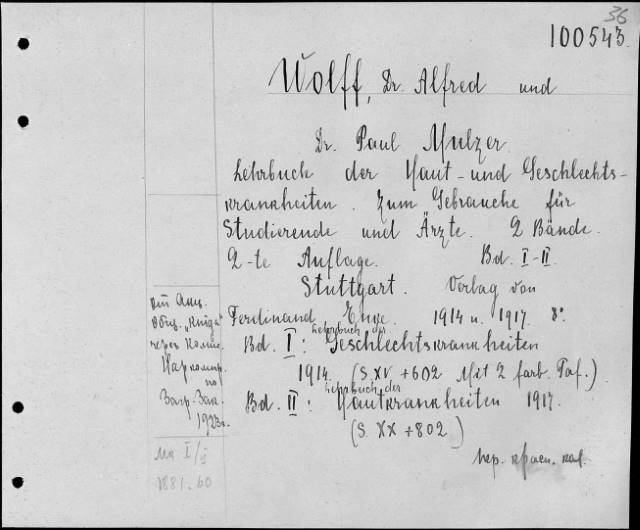 36
100543.
Wolff, Dr. Alfred und
Dr. Paul Mulzer.
Lehrbuch der Haut- und Geschlechts-
krankheiten. Zum Gebrauche für
Studierende und Ärzte. 2 Bände.
2-te Auflage. Bd. I-II.
Stuttgart. Verlag von
Ferdinand Enke. 1914 u. 1917. 8°.
Bd. I: Lehrbuch der Geschlechtskrankheiten
1914. (S. XV + 602 Mit 2 farb. Taf.)
Bd. II: Lehrbuch der Hautkrankheiten 1917.
(S. XX + 802)
От Акц.
Общ. „Книга"
через Комис.
Нар ком
по
Загр. Зак.
1923 г.
1881.60
пер. красн. кол.